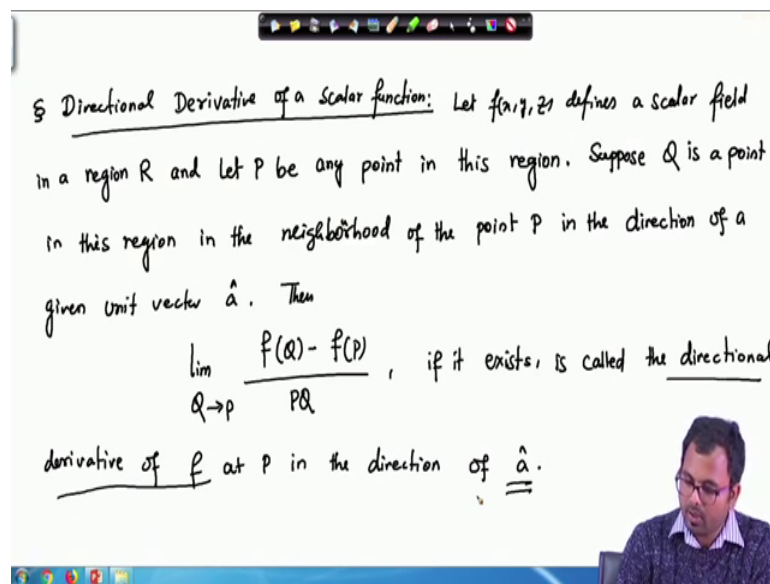 § Directional Derivative of a scalar function: Let f(x, y, z) defines a scalar field
in a region R and let P be any point in this region. Suppose Q is a point
in this region in the neighborhood of the point P in the direction of a
given unit vector â. Then
lim Q→P f(Q) - f(P) / PQ , if it exists, is called the directional
derivative of f at P in the direction of â.